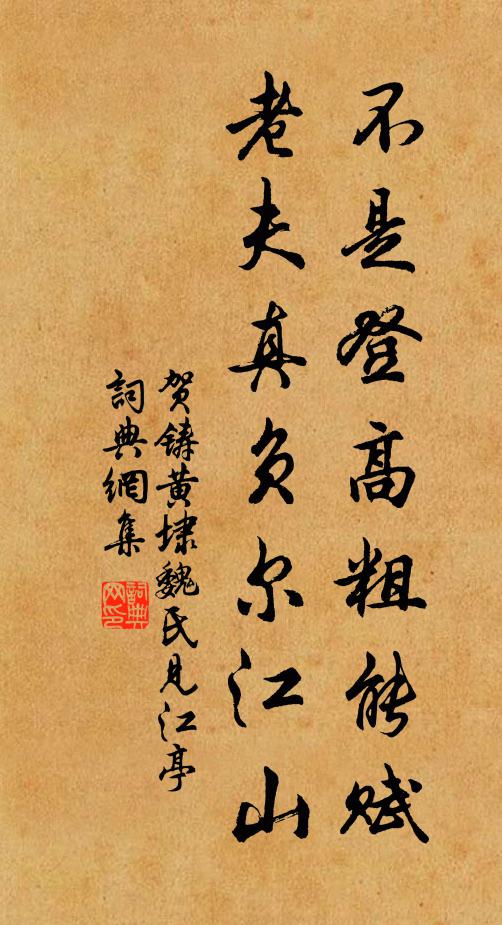 不是登高粗能赋
老夫真负尔江山
贺铸黄埭魏氏见江亭
詞典網集
詞典網印